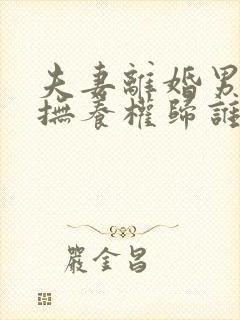 夫妻離婚男
撫養權歸誰
嚴金昌